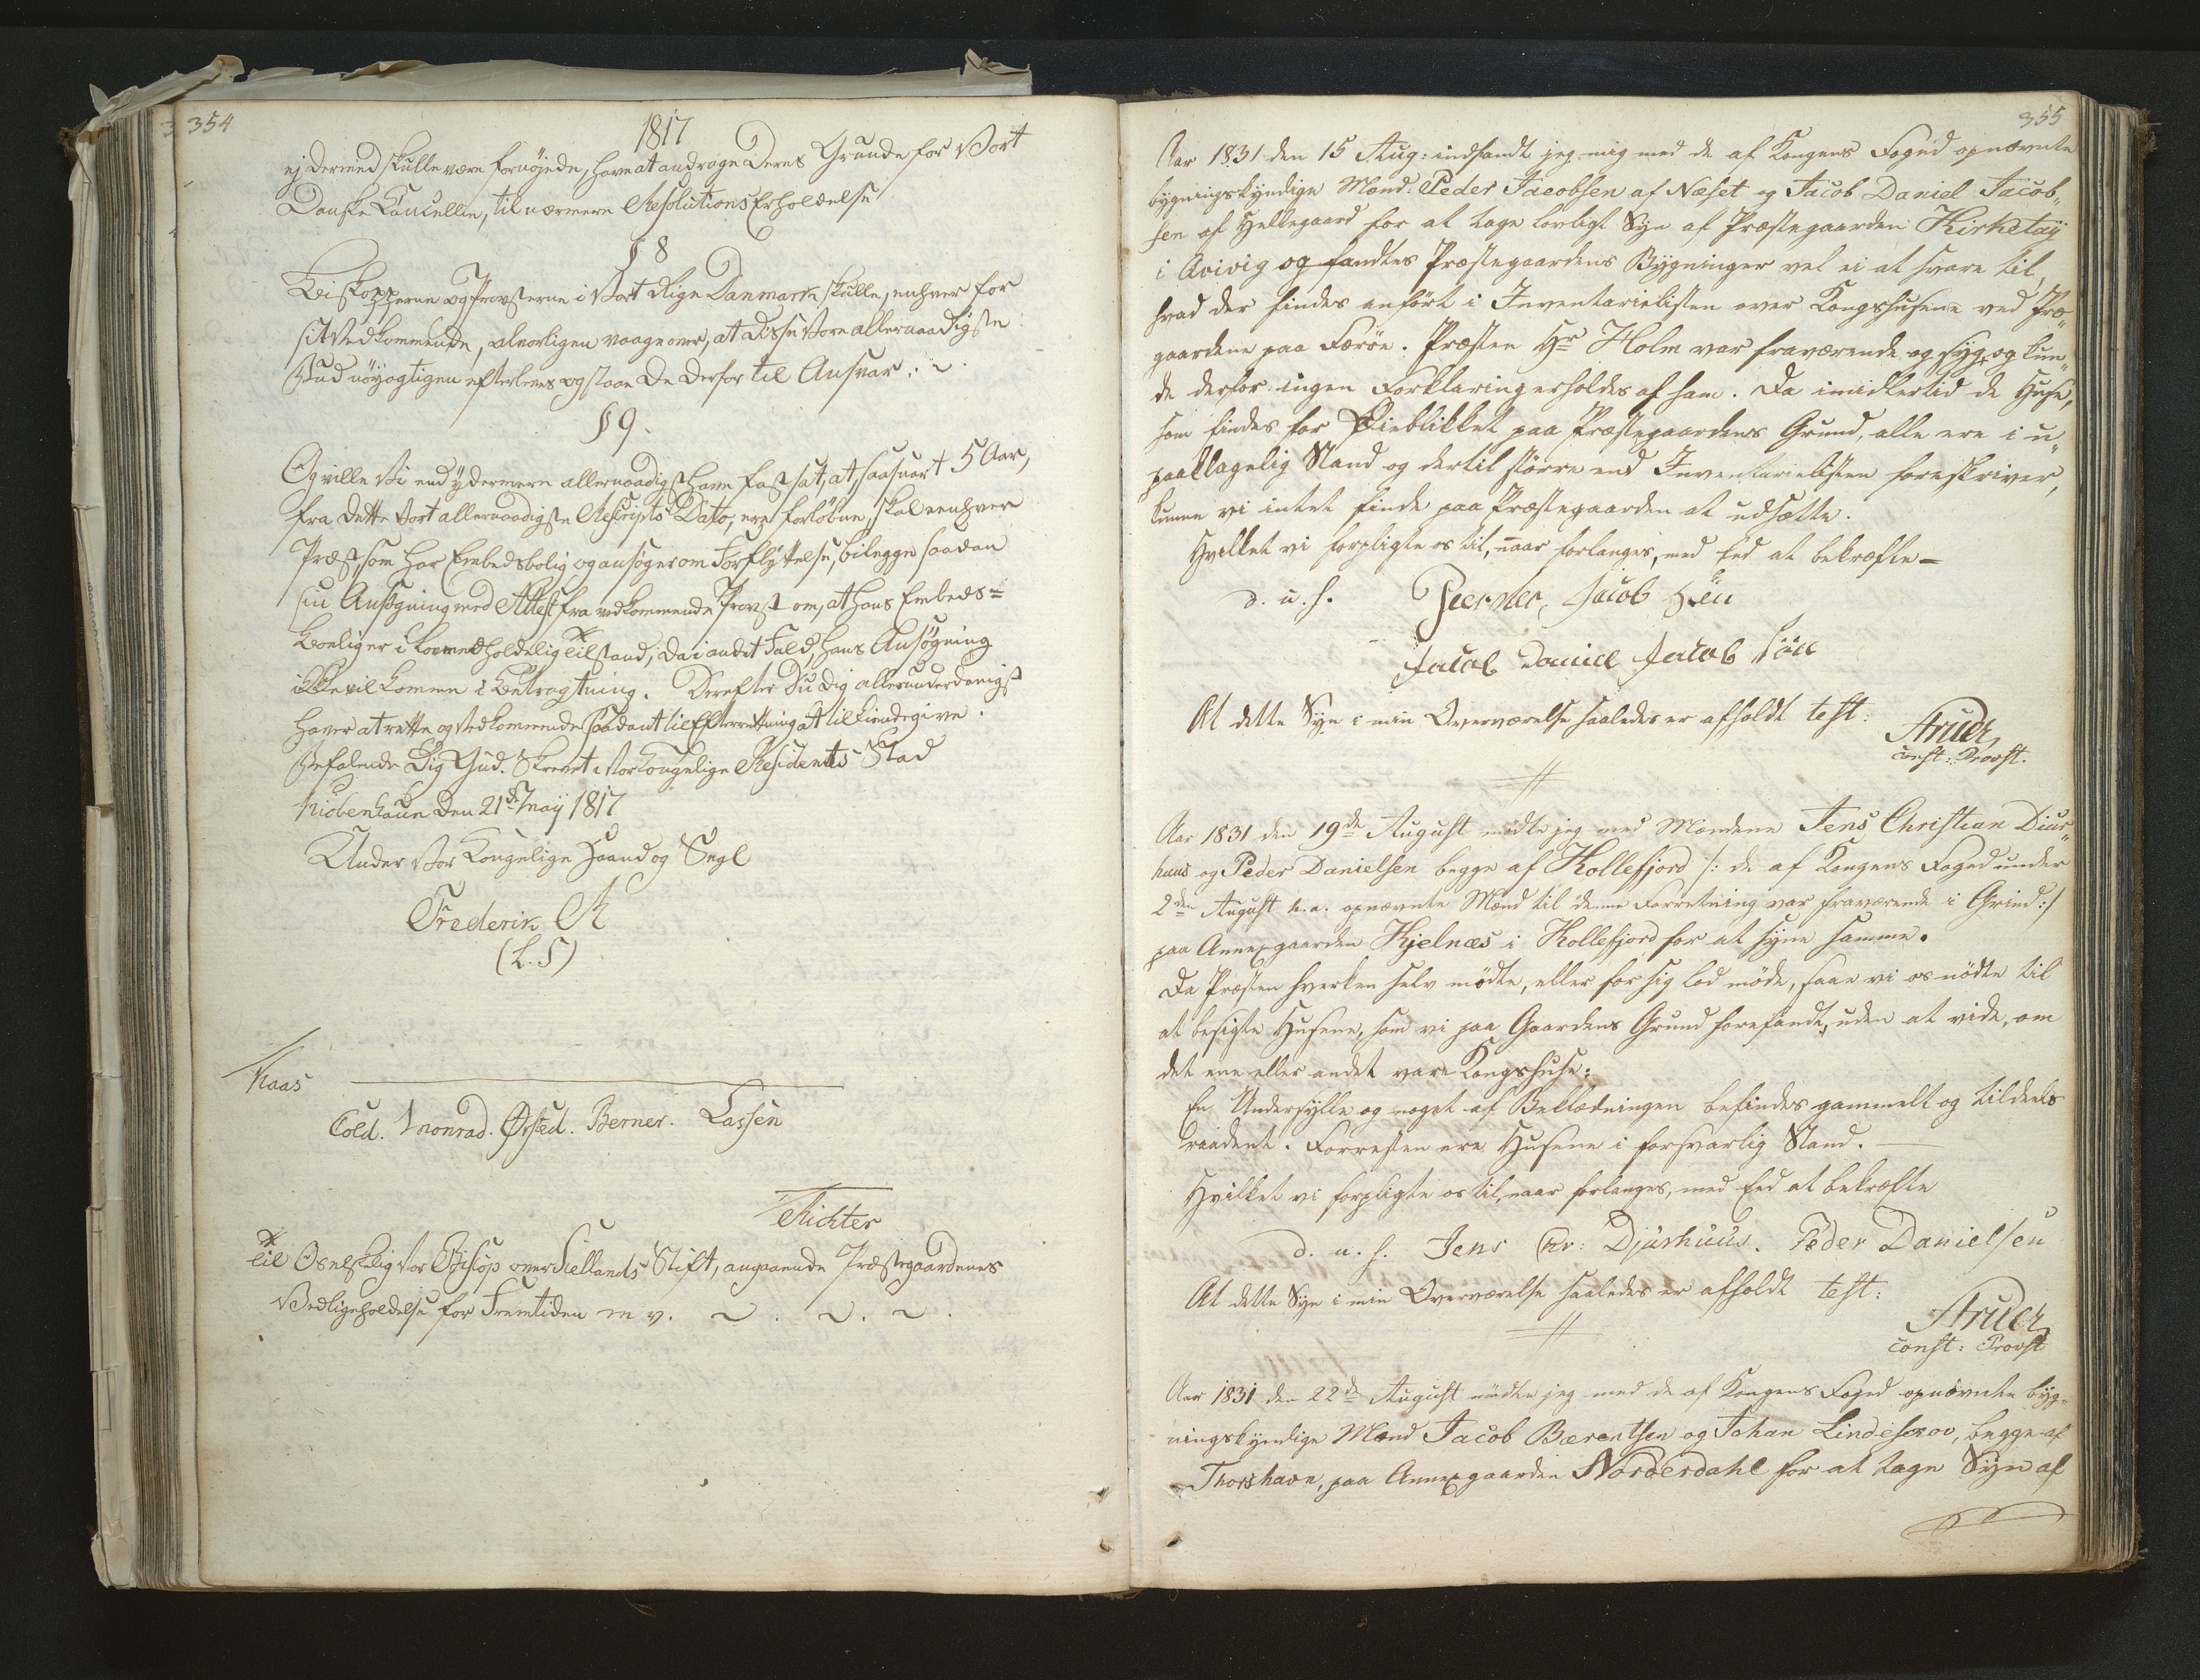 354
1817
ej dermed skulle være fornøjede, have at andrage Deres Grunde for Vort
Danske Cancellie, til nærmere Resolutions Erholdelse
§ 8
Biskopperne og Provsterne i Vort Rige Danmark skulle, enhver for
sit Vedkommende, alvorligen vaage over, at disse Vore allernaadigste
Bud nöyagtigen efterleves og staae De derfor til Ansvar.
§ 9.
Og ville Vi end ydermere allernaadigst have fastsat, at saasnart 5 Aar,
fra dette Vort allernaadigste Rescripts Dato, ere forløbne, skal eenhver
Præst, som har Embedsbolig og ansøger om Forflyttelse, bilegge saadan
sin Ansøgning med Attest fra vedkommende Provst om, at hans Embeds=
Boelig er i forsvarlig Tilstand, da i andet Fald, hans Ansøgning
ikke vil komme i Betragtning. Derefter Du dig allerunderdanigst
haver at rette og Vedkommende Saadant til Efterretning at tilkiendegive.
Befalende Dig Gud. Skrevet i Vor Kongelige Residents Stad
Kiøbenhavn den 21de Maÿ 1817
Under Vor Kongelige Haand og Segl
Frederik R
(L.S)
Kaas
Cold. Monrad. Ørsted. Berner. Lassen
Richter
Til Os elskelig Vor Biskop over Siellands Stift, angaaende Præstegaardenes
Vedligeholdelse for Fremtiden m v.
355
Aar 1831 den 15 Aug: indfandt jeg mig med de af Kongens Foged opnævnte
bygningskyndige Mænd: Peder Jacobsen af Næset og Jacob Daniel Jacob„
sen af Hellegaard for at tage lovligt Syn af Præstegaarden Kirketaÿ
i Qvivig og fandtes Præstegaardens Bygninger vel ei at svare til,
hvad der findes anført i Inventarielisten over Kongshusene ved Præ„
gaardene paa Færöe. Præsten Hr Holm var fraværende og syg, og kun„
de derfor ingen Forklaring erholdes af ham. Da imidlertid de Huse,
som findes for Øieblikket paa Præstegaardens Grund, alle ere i u„
paaklagelig Stand og dertil større end Inventarielisten foreskriver,
kunne vi intet finde paa Præstegaarden at udsætte.
Hvilket vi forpligte os til, naar forlanges, med Eed at bekræfte -
d. u. s.
Jacob Daniel Jacob sön
At dette Syn i min Overværelse saaledes er afholdt test:
const: Provst.
Aar 1831 den 19de August mødte jeg med Mændene Jens Christian Diur„
huus og Peder Danielsen begge af Kollefjord /: de af Kongens Foged under
2den August h.a: opnævnte Mænd til denne Forretning var fraværende i Grind :/
paa Annexgaarden Kjelnæs i Kollefjord for at syne samme.
Da Præsten hverken selv mødte, eller for sig lod møde, saae vi os nødte til
at besigte Husene, som vi paa Gaardens Grund forefandt, uden at vide, om
det ene eller andet vare Kongshuse:
En Undersylle og noget af Beklædningen befindes gammelt og tildeels
raadent. Forresten ere Husene i forsvarlig Stand.
Hvilket vi forpligte os til, naar forlanges, med Eed at bekræfte
d. u. s. Jens Chr: Djurhuus. Peder Danielsen
At dette Syn i min Overværelse saaledes er afholdt test:
const: Provst
Aar 1831 den 22de August mødte jeg med de af Kongens Foged opnævnte byg„
ningskyndige Mænd Jacob Bærentsen og Johan Lindeskov, begge af
Thorshavn, paa Annexgaarden Norderdahl for at tage Syn af